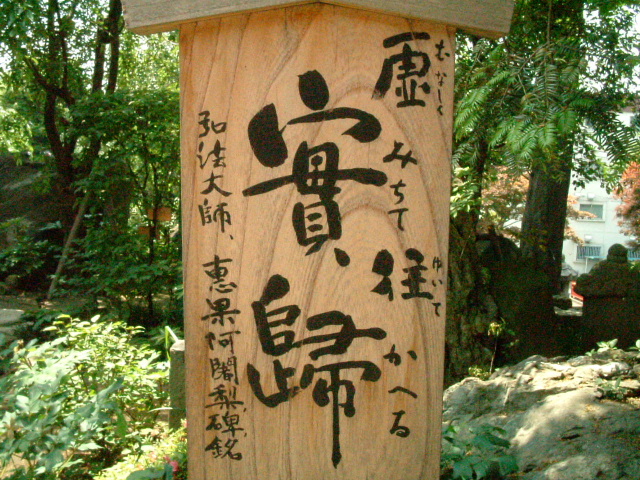 むなしく ゆいて
虚往
みちて かへる
實歸
弘法大師、恵果阿闍梨碑銘